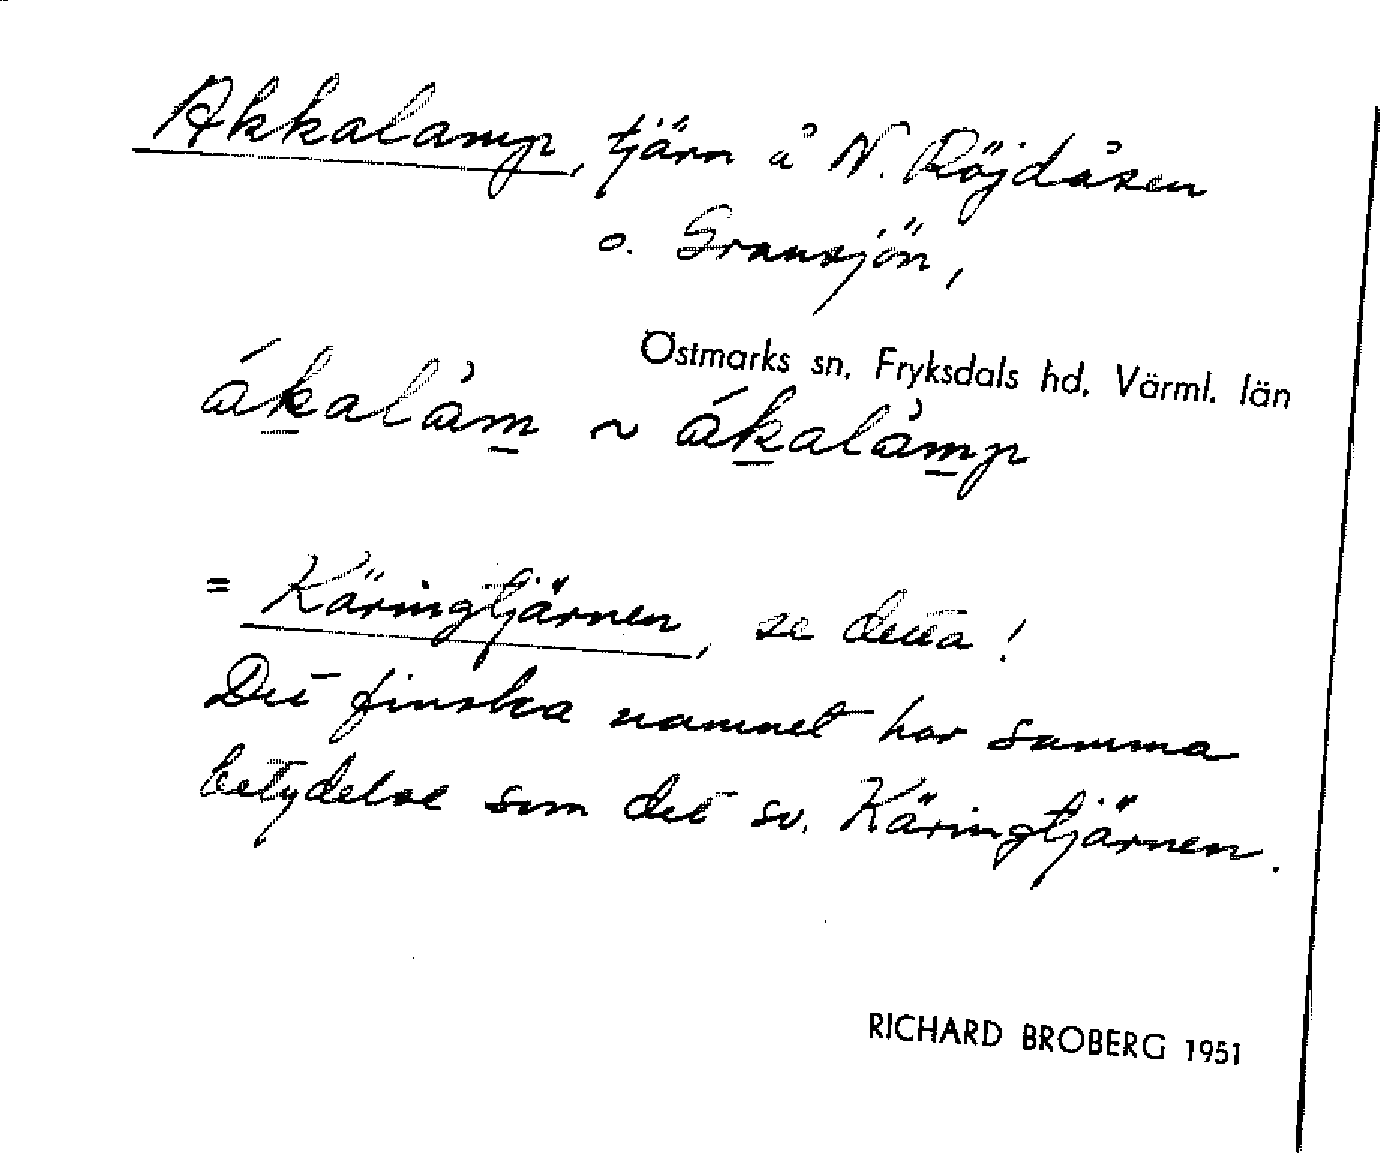 Akkalamp, tjärn å N. Röjdåsen
o. Gransjön,
Östmarks sn. Fryksdals hd. Värml. län
ákalàm ~ ákalàmp
= Käringtjärnen, se detta!
Det finska namnet har samma
betydelse som det sv. Käringtjärnen.
RICHARD BROBERG 1951